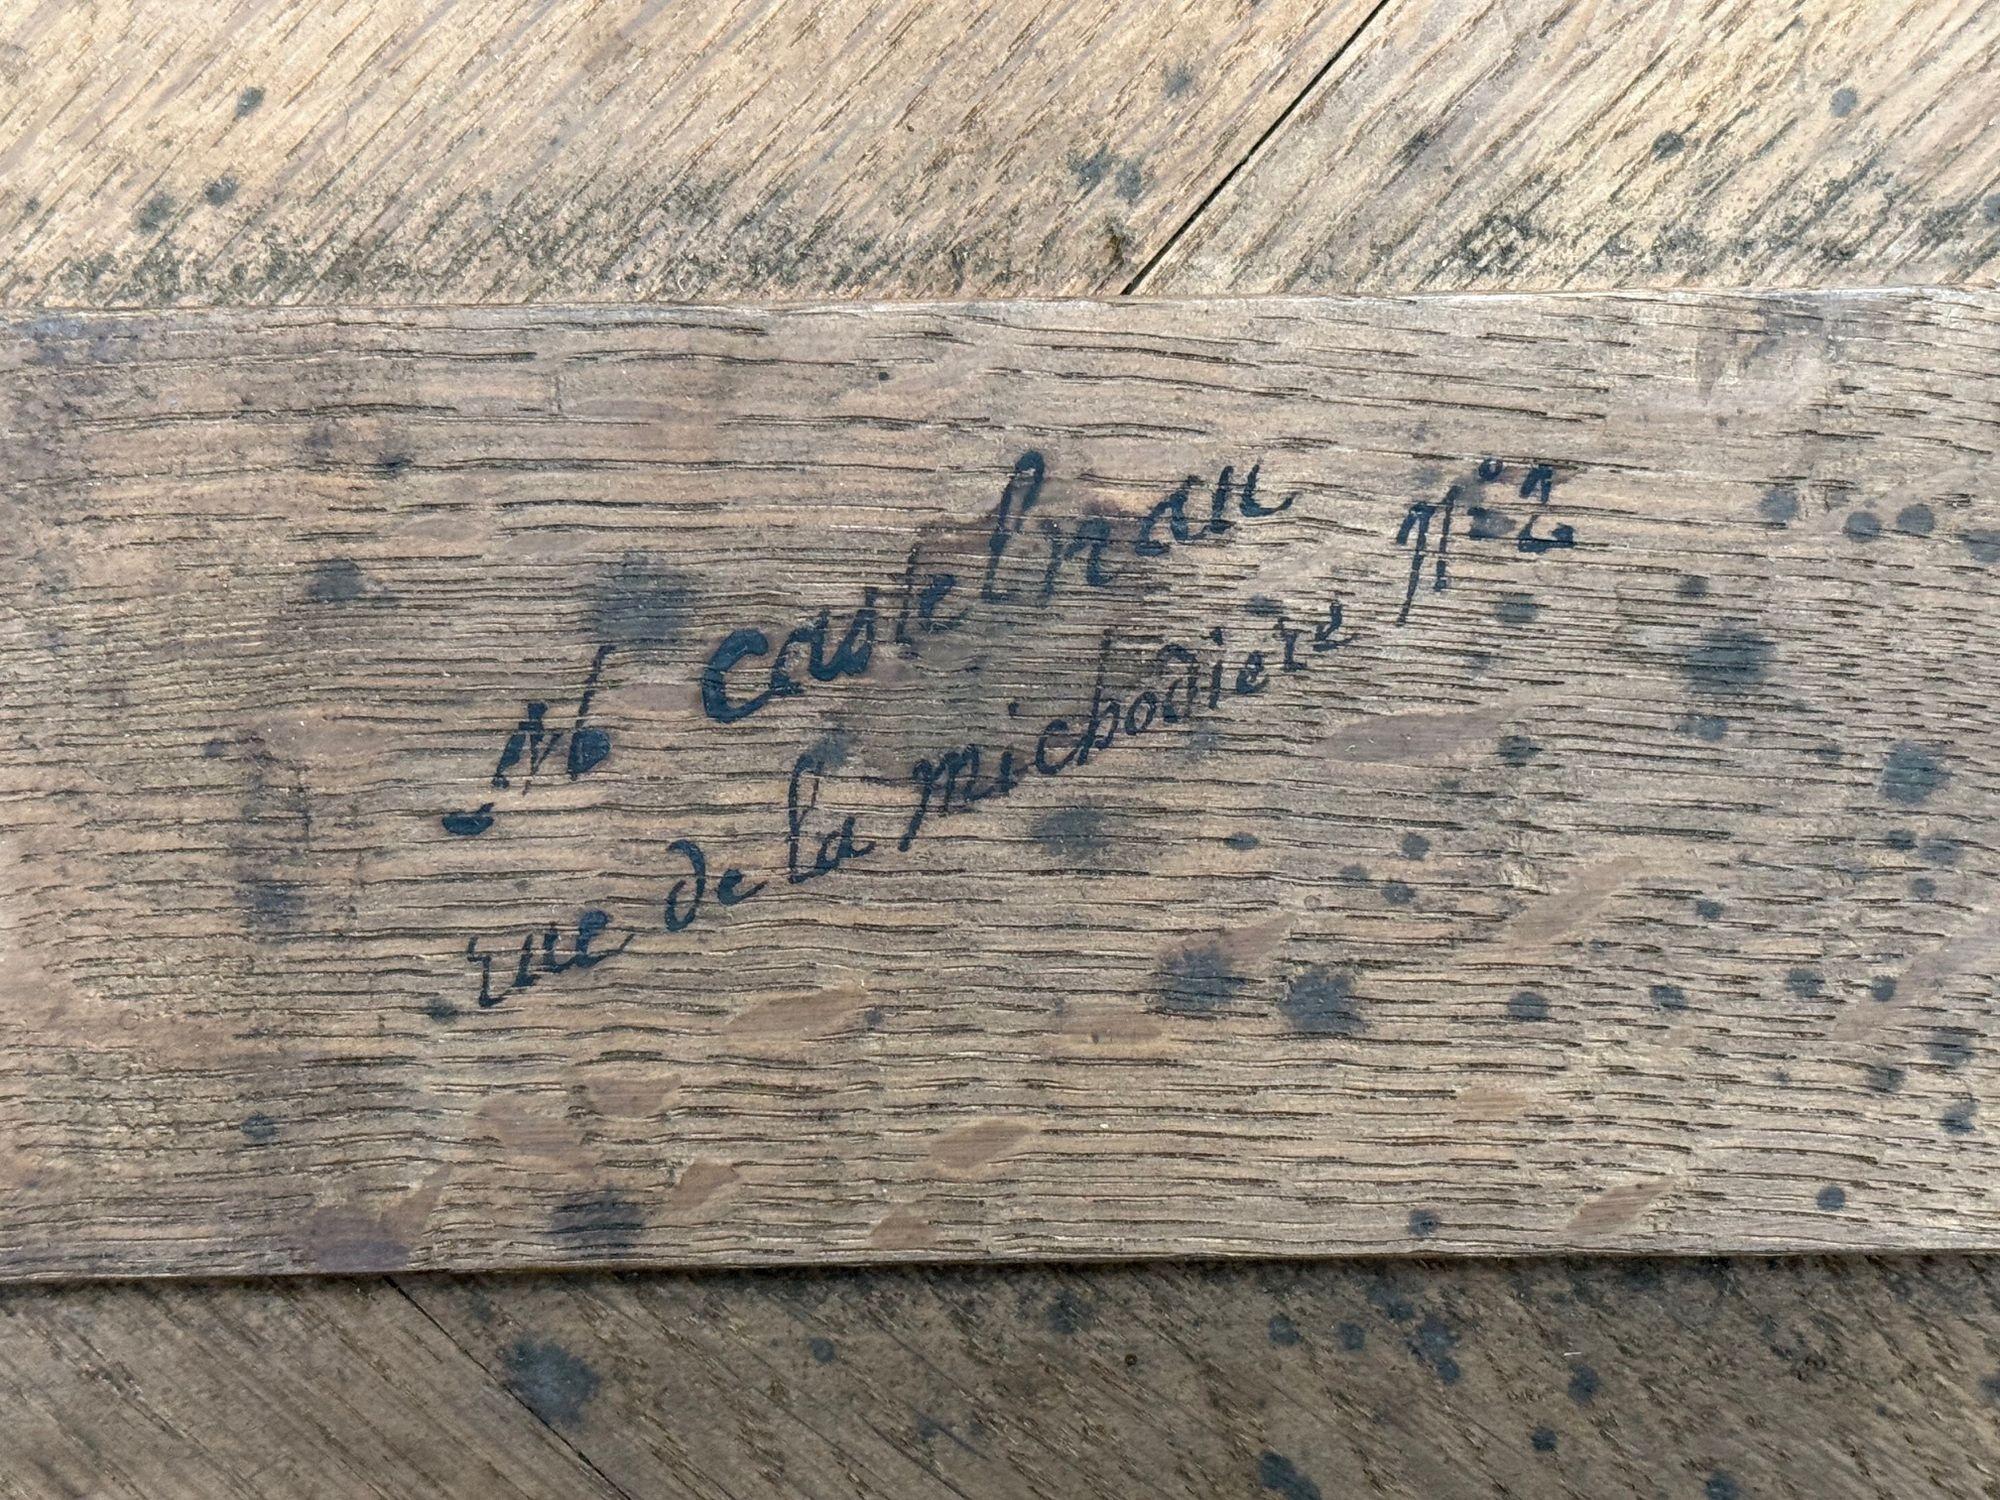 M Castelnau
rue de la michodiere N° 2